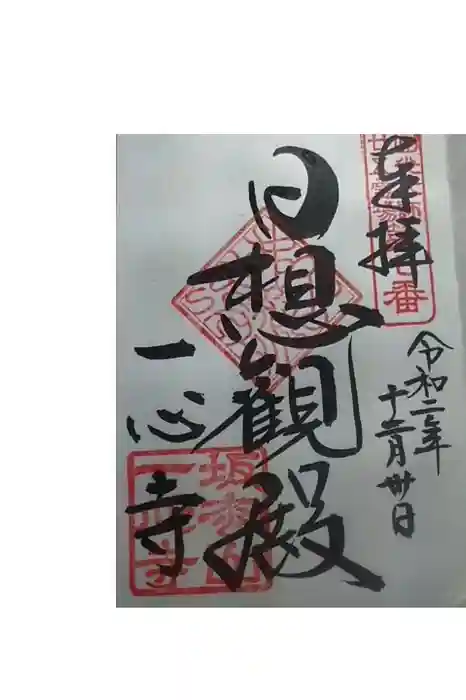 奉拝
令和二年
十二月卅日
日想観殿
一心寺
坂松山
一心寺